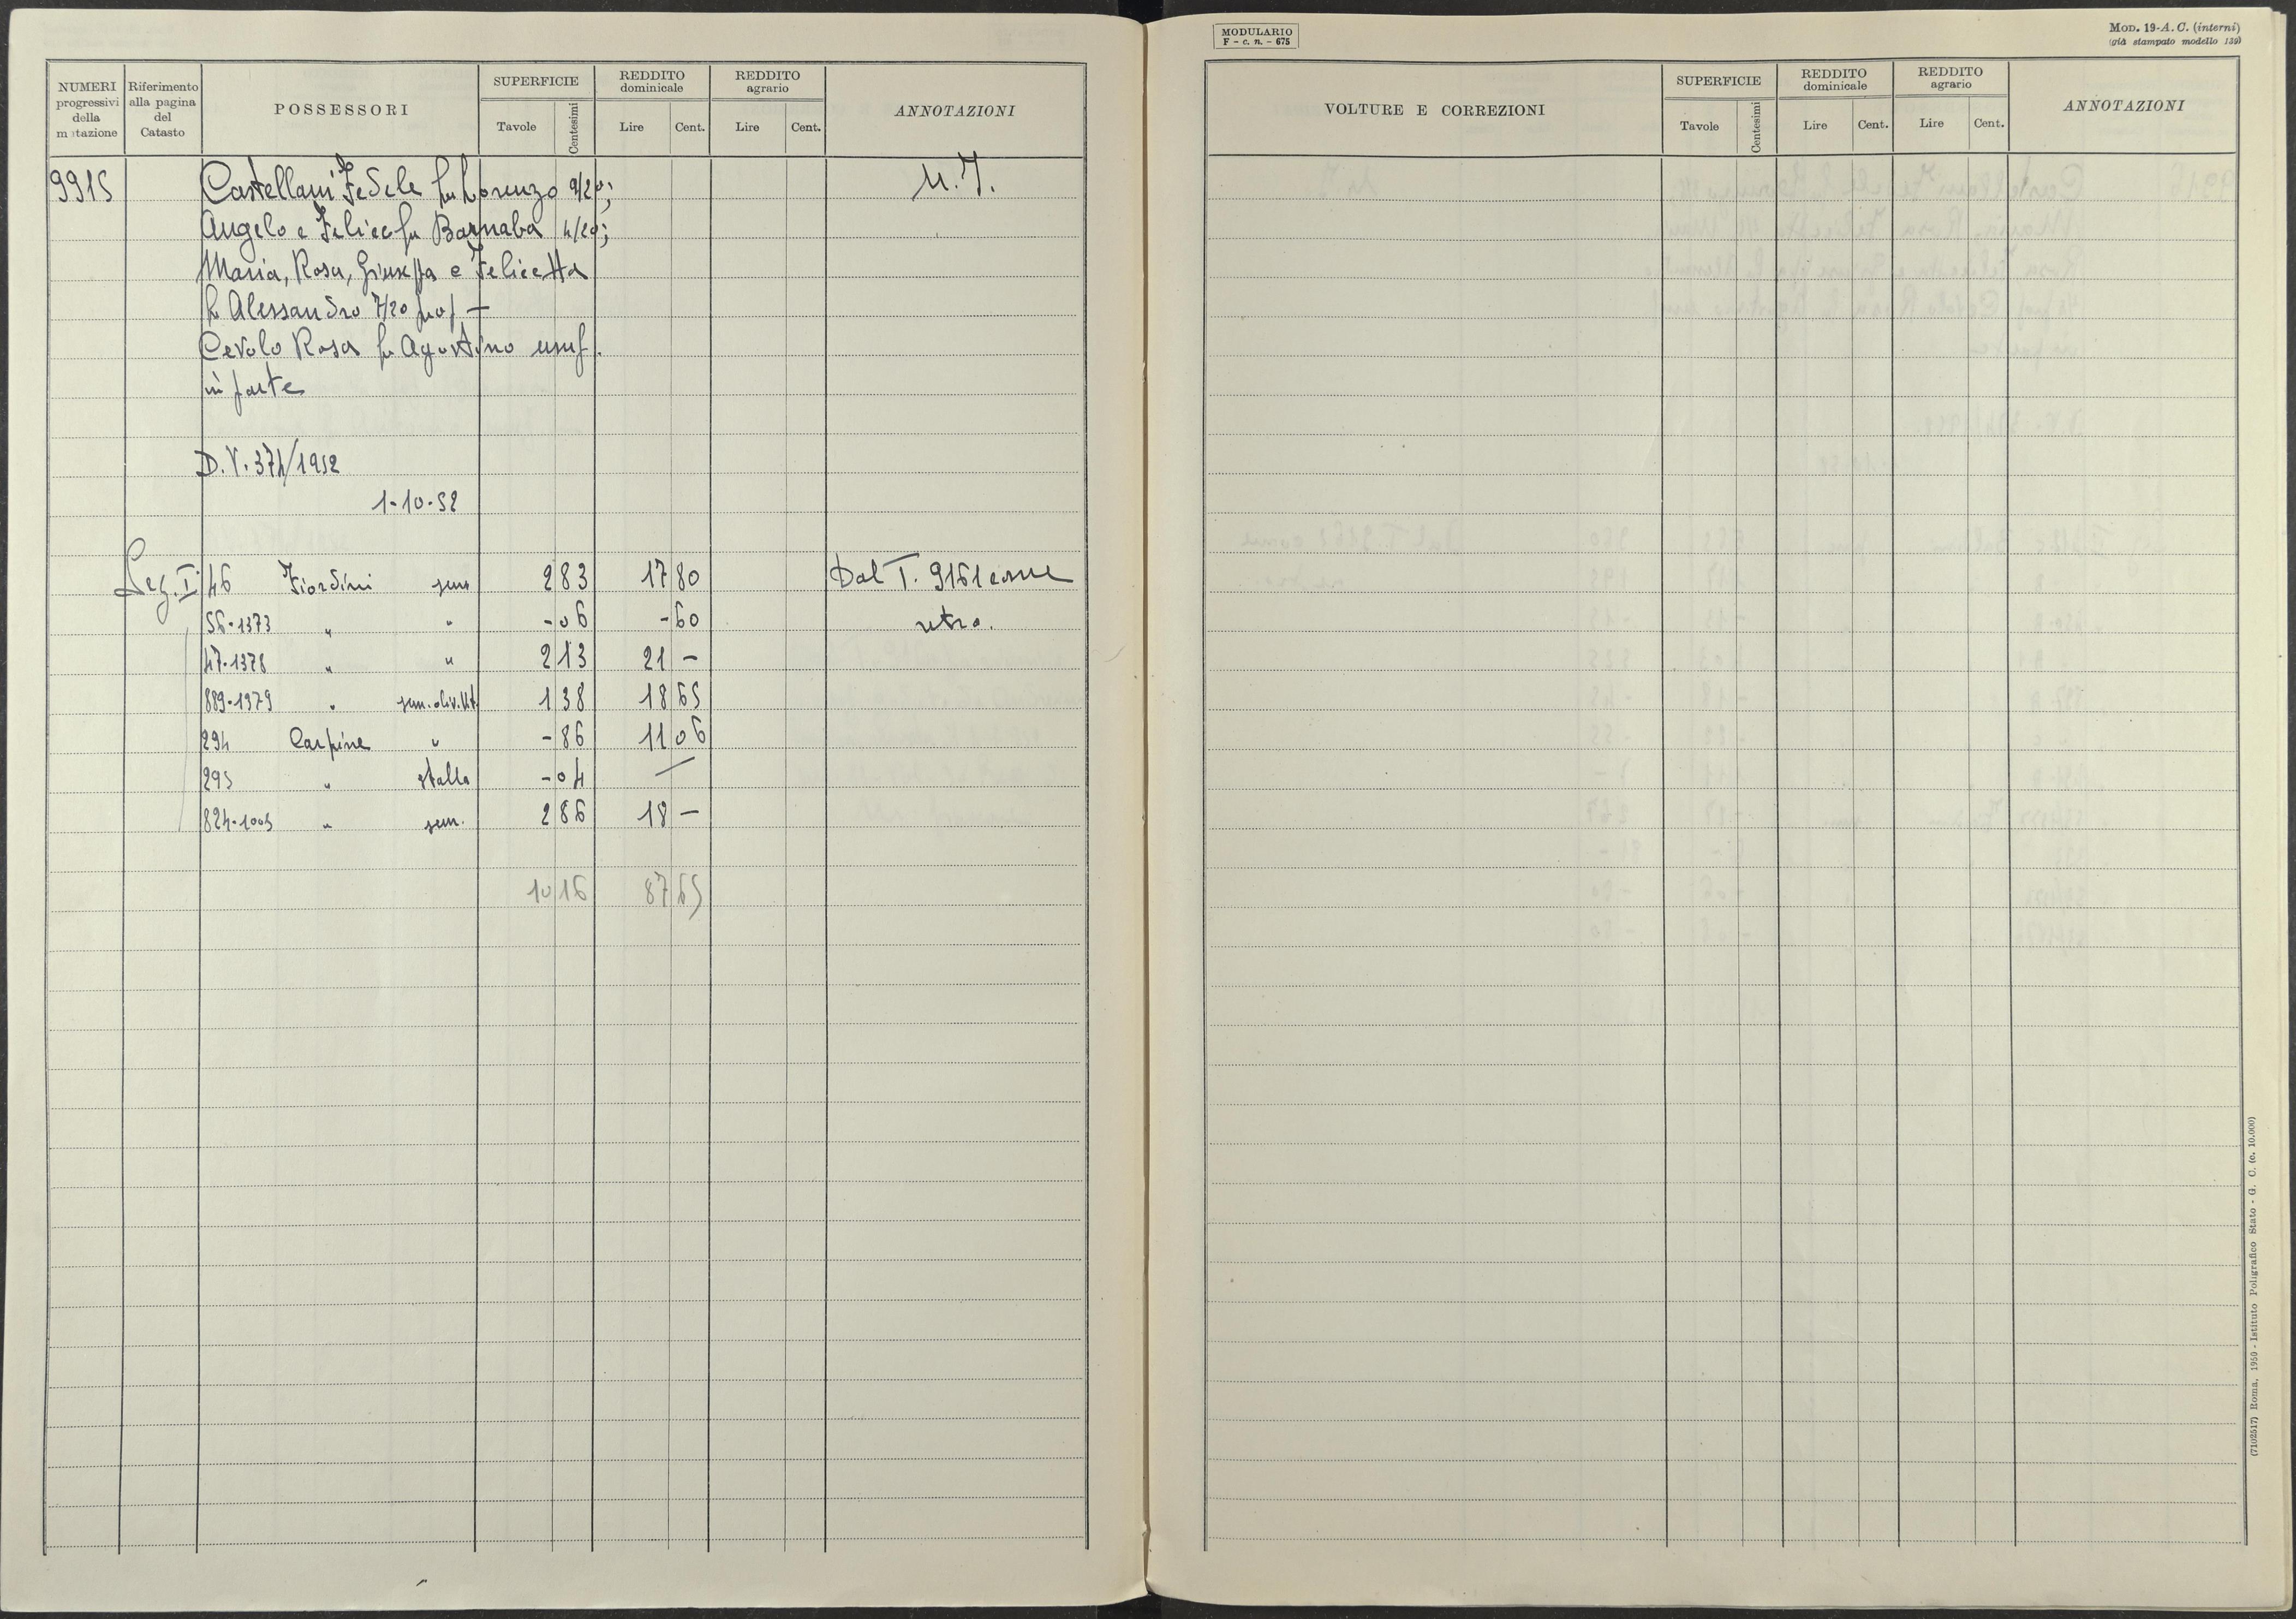 NUMERI progressivi della mutazione
Riferimento alla pagina del Catasto
POSSESSORI
SUPERFICIE
Tavole Centesimi
REDDITO dominicale
Lire Cent.
REDDITO agrario
Lire Cent.
ANNOTAZIONI
9915 Castellani Fedele fu Lorenzo 9/20; M.I.
Angelo e Felice fu Barnaba 4/20;
Maria, Rosa, Giuseppa e Felicetta
fu Alessandro 7/20 prop —
Cevolo Rosa fu Agostino usuf.
in parte
D.V. 374/1952
1-10-52
Sez. I 46 Fiordini sem 2 83 17 80 Dal T. 9161 come
56-1373 " " - 06 - 60 retro.
47-1378 " " 2 13 21 —
889-1979 " sem. oliv. vit. 1 38 18 65
294 Carpine " - 86 11 06
295 " stalla - 04 —
824-1005 " sem. 2 86 18 —
10 16 87 65
MODULARIO
F - c. n. - 675
MOD. 19-A. C. (interni)
(già stampato modello 139)
VOLTURE E CORREZIONI
SUPERFICIE
Tavole Centesimi
REDDITO dominicale
Lire Cent.
REDDITO agrario
Lire Cent.
ANNOTAZIONI
(7102517) Roma, 1950 - Istituto Poligrafico Stato - G. C. (c. 10.000)